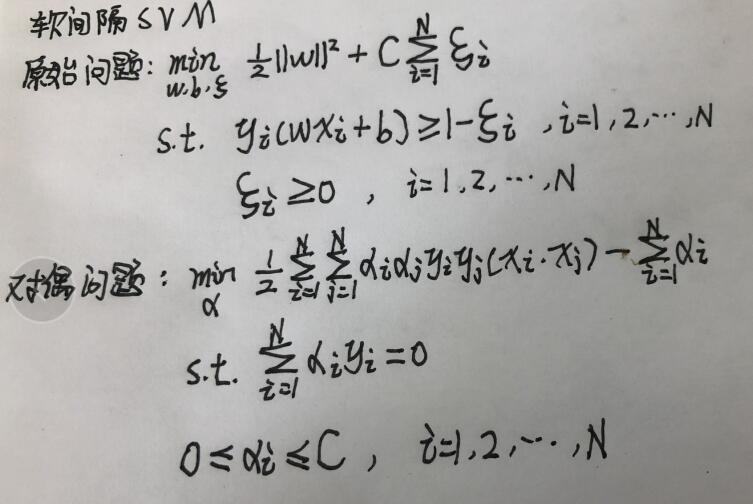 软间隔SVM
原始问题: min_{w,b,ξ} ½||w||² + C∑_{i=1}^{N} ξi
s.t. yi(wxi+b)≥1-ξi ,i=1,2,⋯,N
ξi≥0 , i=1,2,⋯,N
对偶问题: min_{α} ½∑_{i=1}^{N}∑_{j=1}^{N} αiαjyiyj(xi·xj)-∑_{i=1}^{N}αi
s.t. ∑_{i=1}^{N} αiyi=0
0≤αi≤C, i=1,2,⋯,N